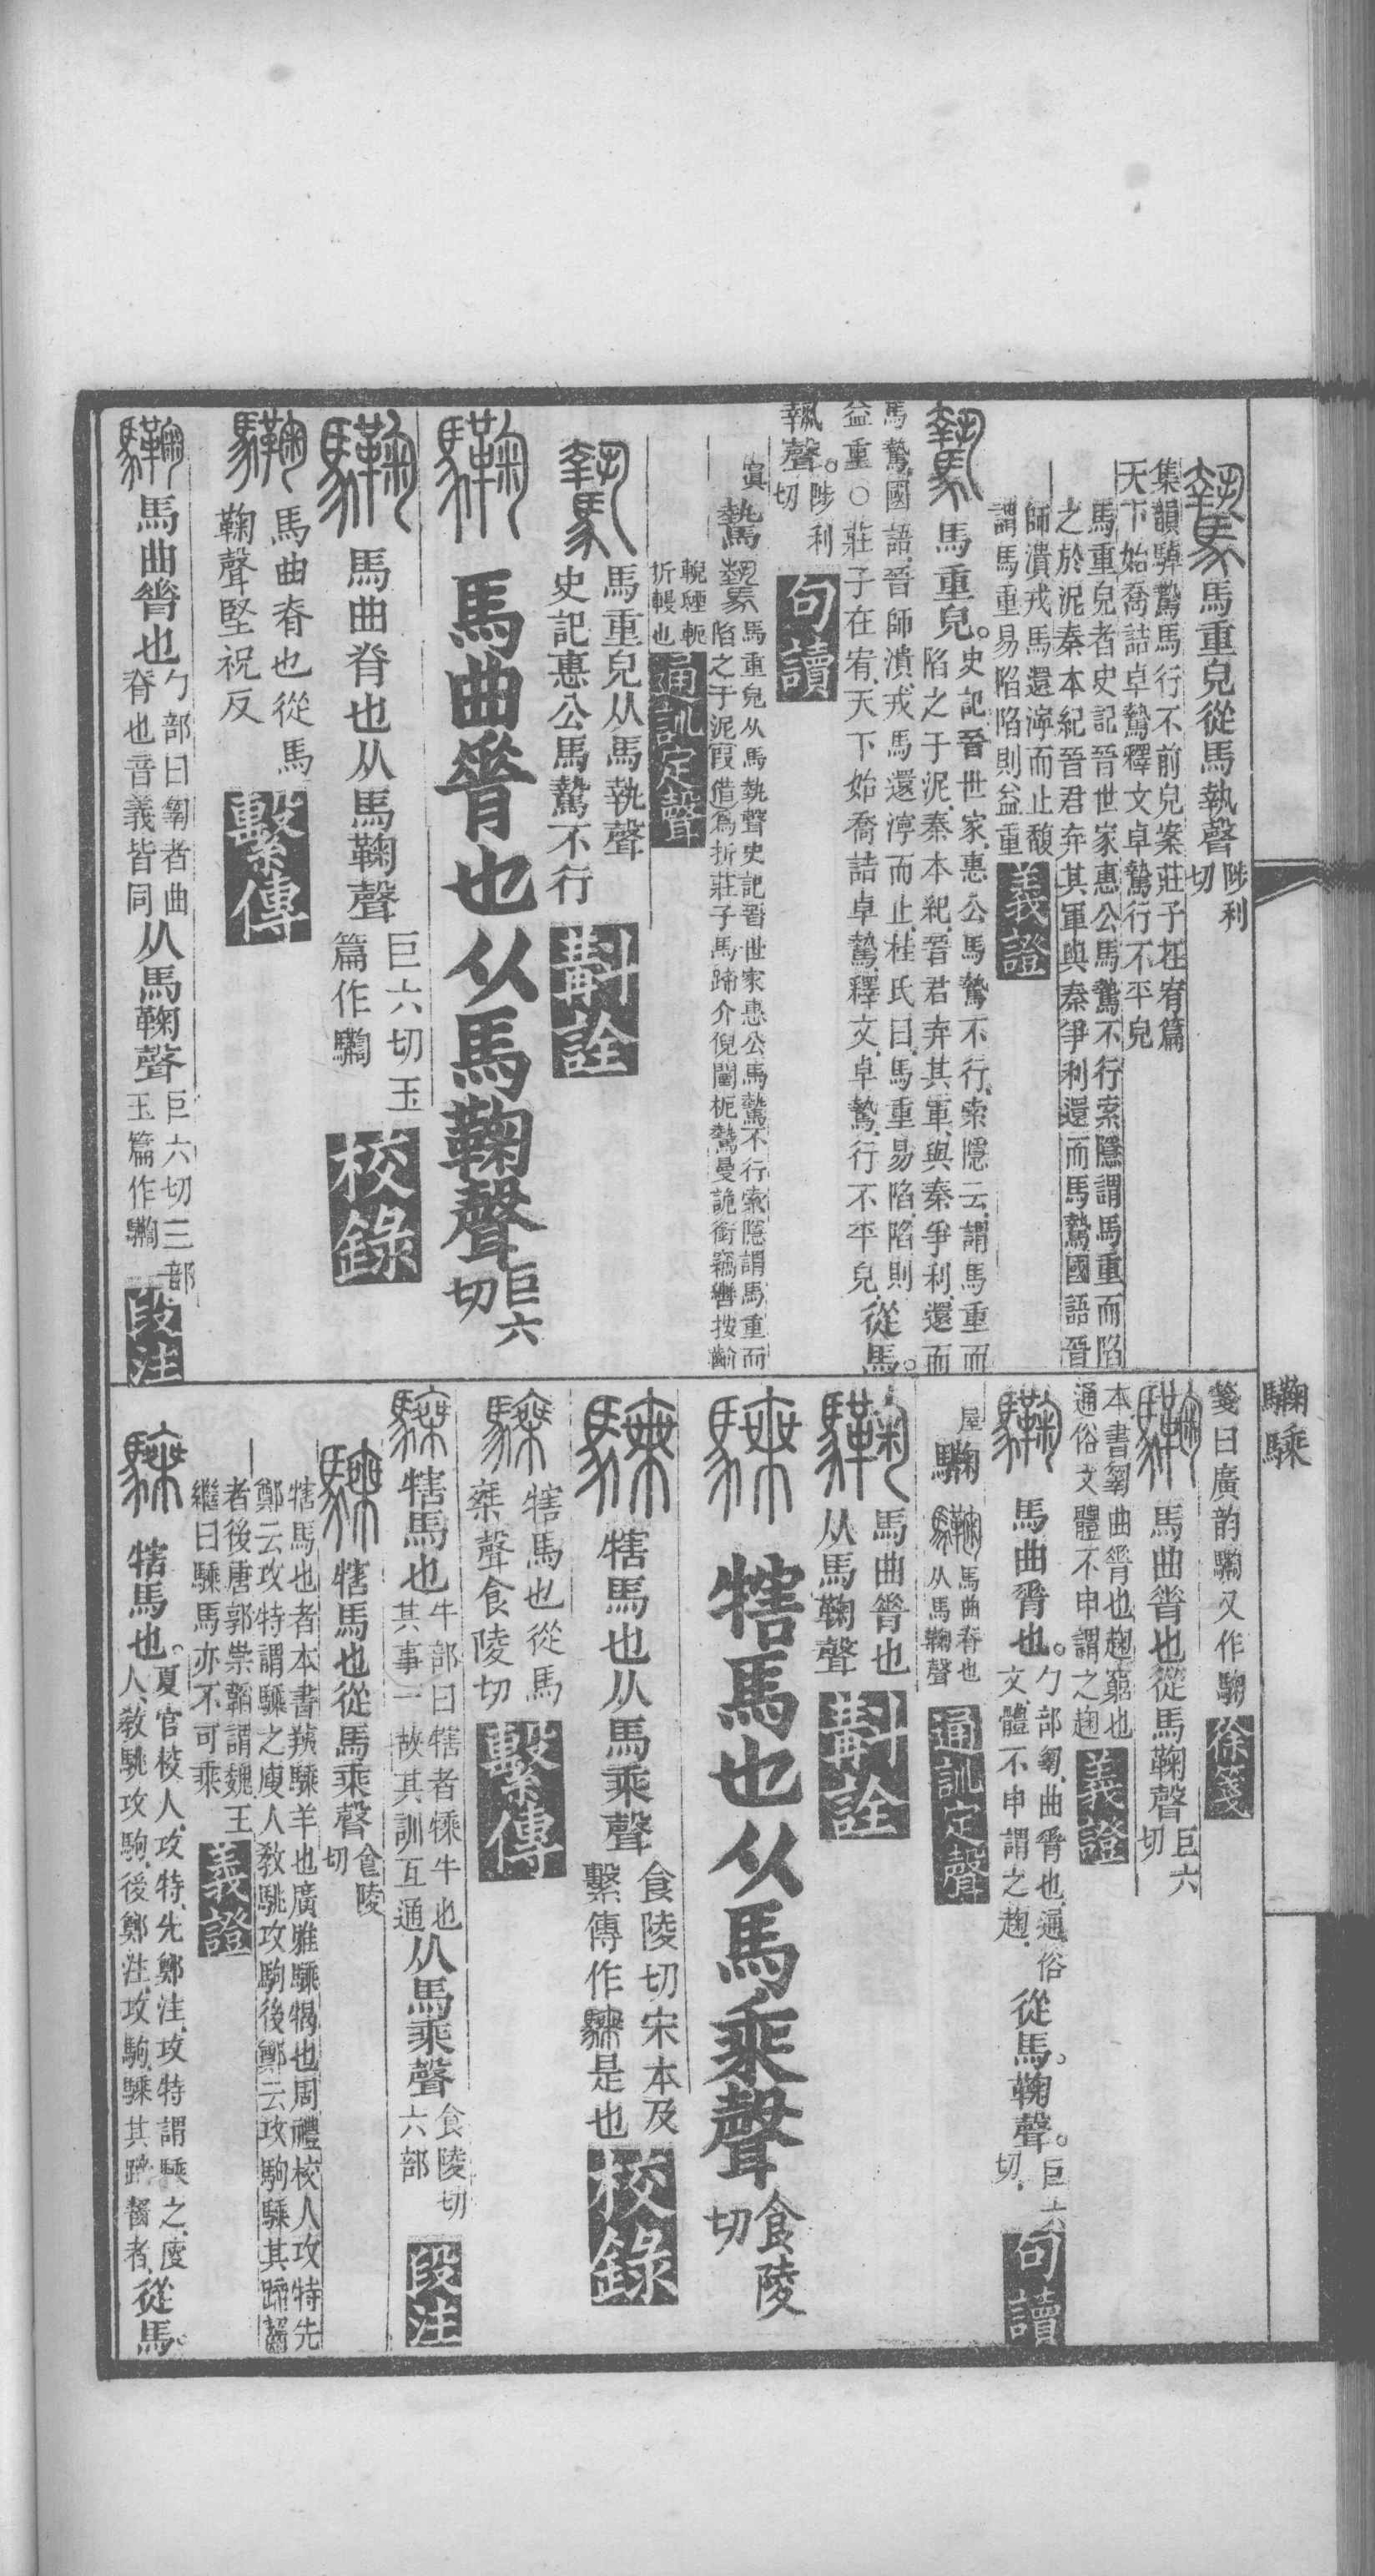 馬重皃從馬執聲陟利切
集韻馽驇馬行不前皃案莊子在宥篇
天下始喬詰卓驇釋文卓驇行不平皃
馬重皃者史記晉世家惠公馬驇不行索隱謂馬重而陷
之於泥秦本紀晉君弃其軍與秦爭利還而馬驇國語晉
師潰戎馬還濘而止馥
謂馬重易陷陷則益重
義證
馬重皃。史記、晉世家、惠公馬驇不行、索隱云、謂馬重而
陷之于泥、秦本紀、晉君弃其軍、與秦爭利、還而
馬驇、國語、晉師潰、戎馬還濘而止、桂氏曰、馬重易陷、陷則
益重○莊子在宥、天下始喬詰卓驇、釋文、卓驇、行不平皃、從馬。
執聲。陟利切
句讀
驇
馬重皃从馬執聲史記晉世家惠公馬驇不行索隱謂馬重而
陷之于泥叚借為折莊子馬蹄介倪闉枙驇曼詭銜竊轡按齧
輗軛
折轅也
通訓定聲
馬重皃从馬執聲
史記惠公馬驇不行
斠詮
馬曲脊也从馬鞠聲巨六切
馬曲脊也从馬鞠聲
巨六切玉
篇作驧
校錄
馬曲脊也從馬
鞠聲堅祝反
繫傳
馬曲脊也勹部曰匑者曲
脊也音義皆同从馬鞠聲巨六切三部
玉篇作驧
段注
驧騬
箋曰廣韵驧又作
徐箋
馬曲脊也從馬鞠聲巨六切
本書匑曲脊也趜窮也
通俗文體不申謂之趜
義證
馬曲脊也。勹部匑、曲脊也、通俗
文、體不申謂之趜、從馬。鞠聲。巨六切、
句讀
屋
驧
馬曲脊也
从馬鞠聲
通訓定聲
馬曲脊也
从馬鞠聲
斠詮
犗馬也从馬乘聲食陵切
犗馬也从馬乘聲
食陵切宋本及
繫傳作騬是也
校錄
犗馬也從馬
椉聲食陵切
繫傳
犗馬也牛部曰犗者騬牛也
其事一故其訓互通从馬乘聲食陵切
六部
段注
犗馬也從馬乘聲食陵切
犗馬也者本書羠騬羊也廣雅騬犗也周禮校人攻特先
鄭云攻特謂騬之廋人敎駣攻駒後鄭云攻駒騬其蹄齧
者後唐郭崇韜謂魏王
繼曰騬馬亦不可乘
義證
犗馬也。夏官校人、攻特、先鄭注、攻特謂騬之、廋
人、敎駣攻駒、後鄭注、攻駒、騬其蹄齧者、從馬。